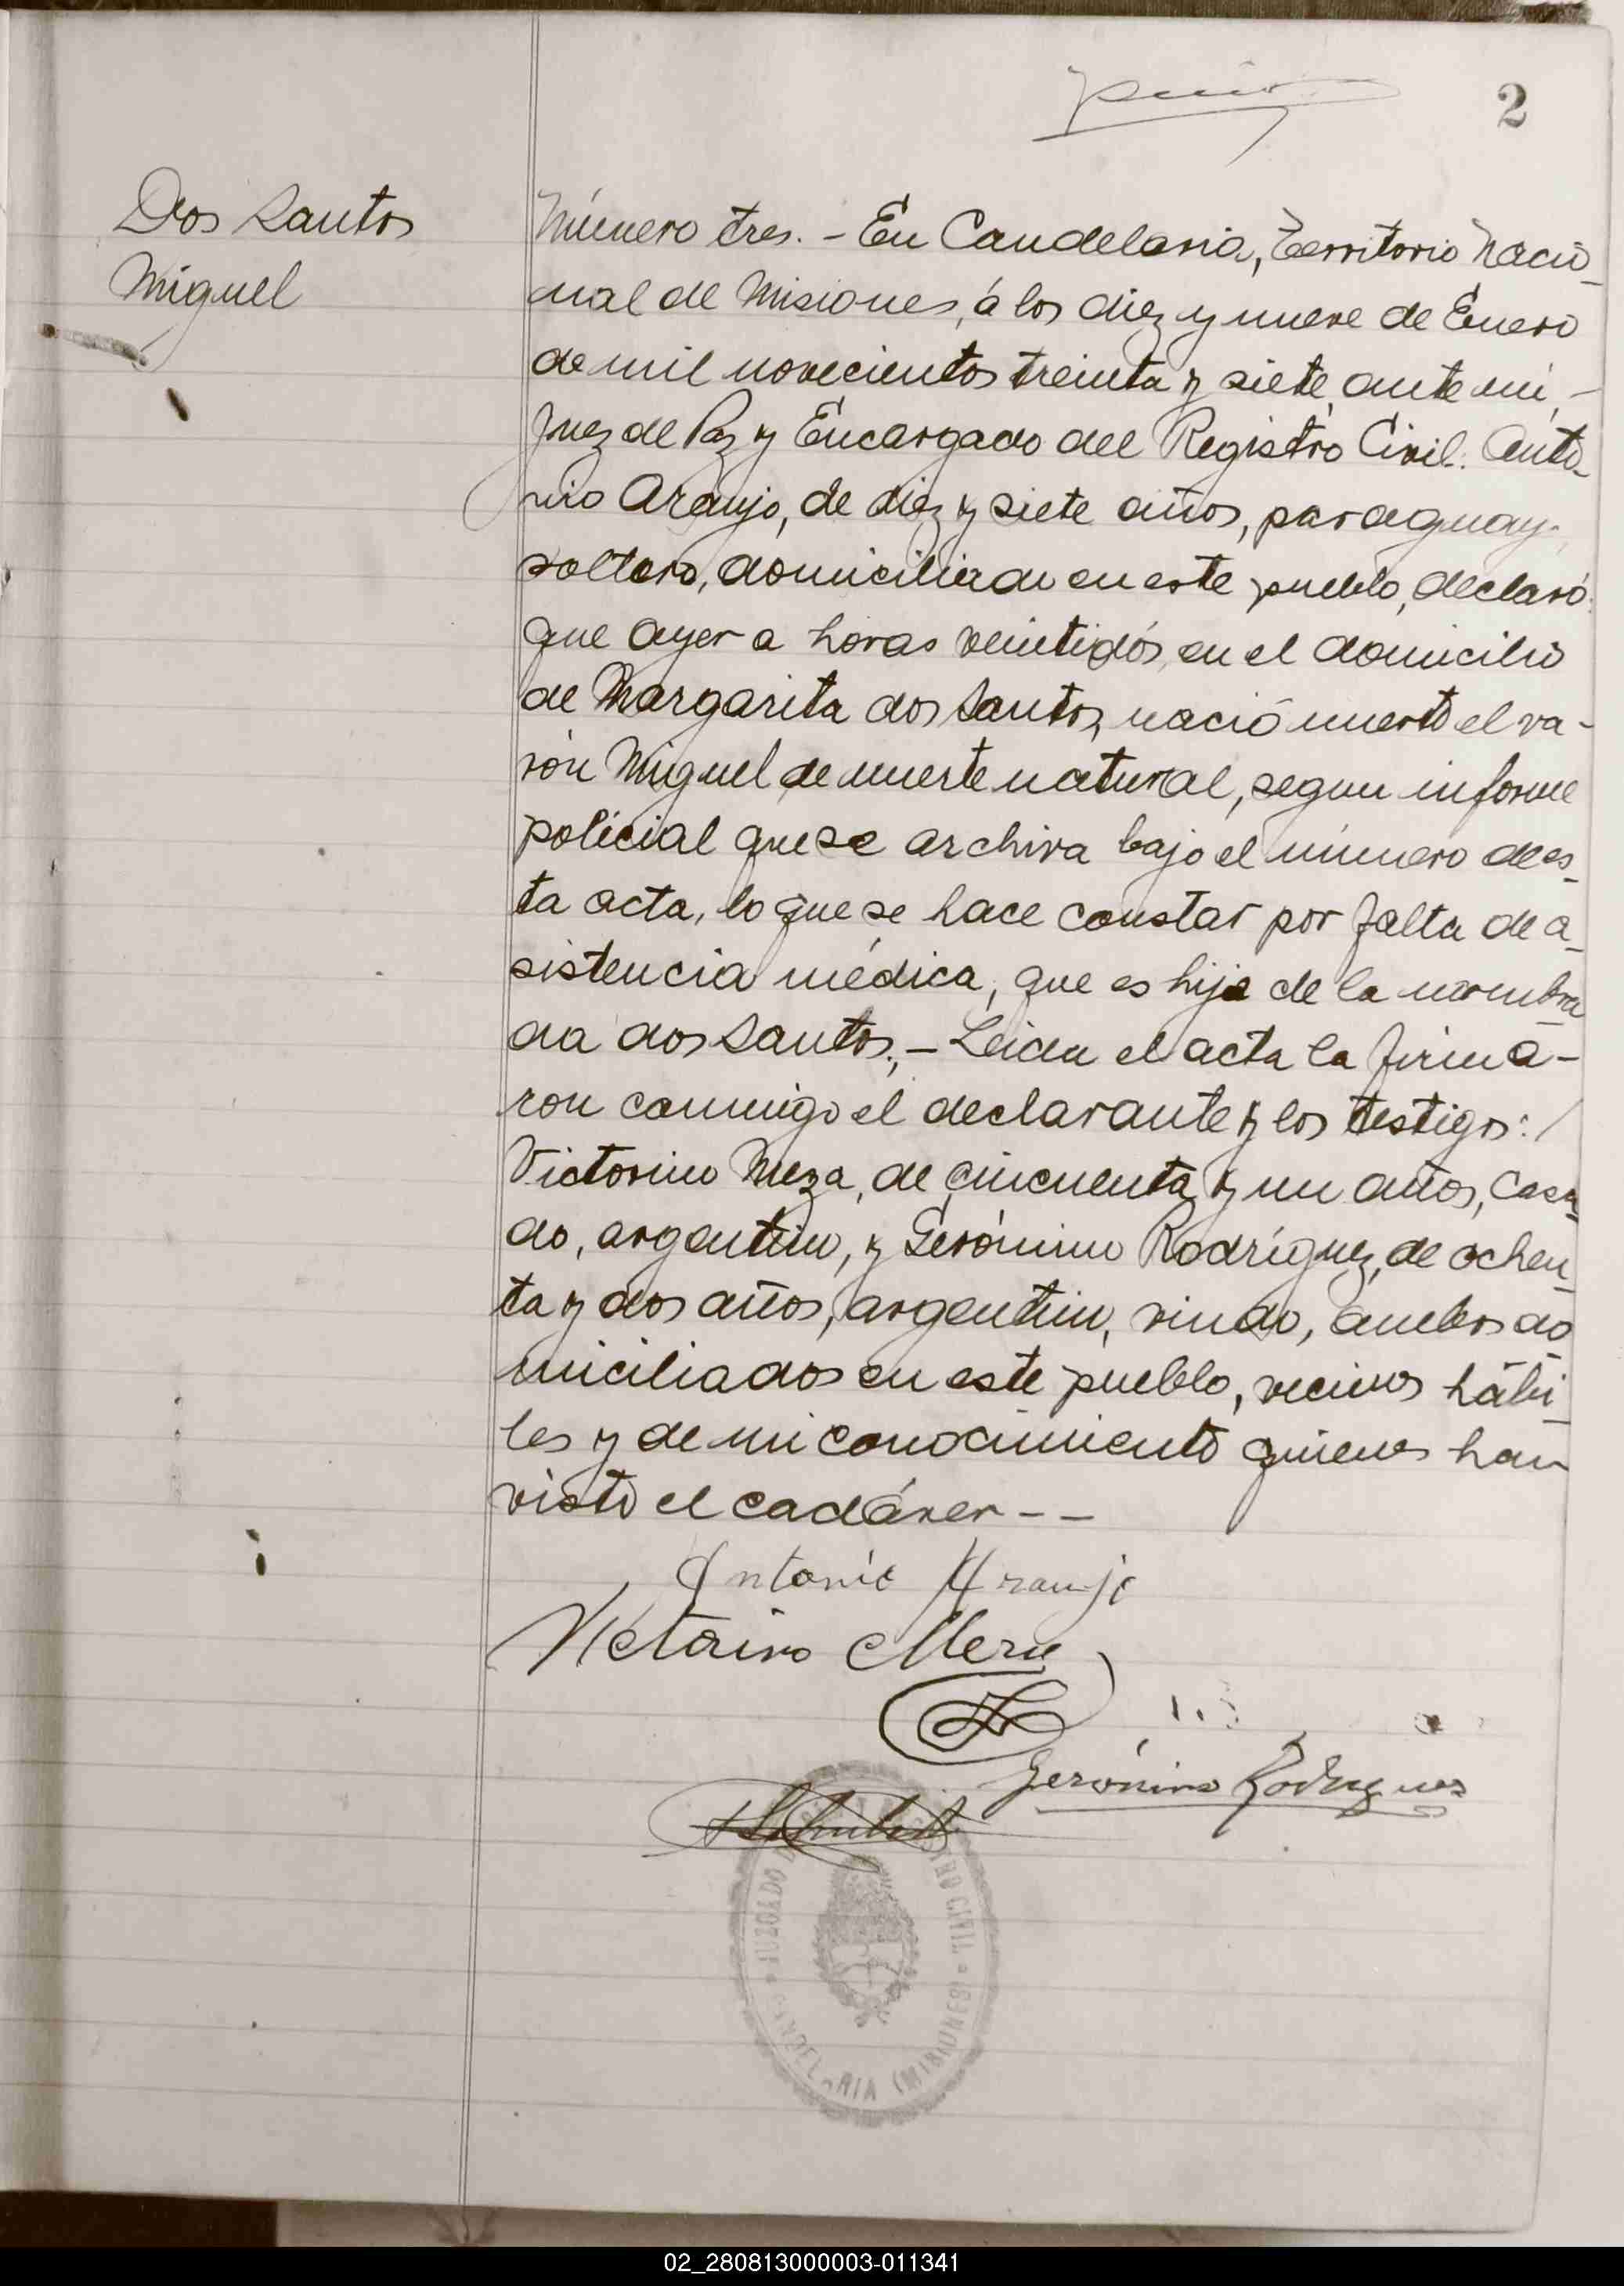 2
Dos Santos
Miguel
Número tres. - En Candelaria, Territorio Nacio-
nal de Misiones, á los diez y nueve de Enero
de mil novecientos treinta y siete, ante mi, -
Juez de Paz y Encargado del Registro Civil: Anto-
nio Araujo, de diez y siete años, paraguay.,
soltero, domiciliado en este pueblo, declaró:
que ayer a horas veintidós, en el domicilio
de Margarita dos Santos, nació muerto el va-
rón Miguel de muerte natural, segun informe
policial que se archiva bajo el número de es-
ta acta, lo que se hace constar por falta de a-
sistencia médica, que es hijo de la nombra-
da dos Santos. - Leida el acta la firma-
ron conmigo el declarante y los testigos: /
Victorino Meza, de cincuenta y un años, casa-
do, argentino, y Gerónimo Rodríguez, de ochen-
ta y dos años, argentino, viudo, ambos do-
miciliados en este pueblo, vecinos hábi-
les y de mi conocimiento quienes han
visto el cadáver - -
Antonio Araujo
Victorino Meza
Gerónimo Rodriguez
JUZGADO REGISTRO CIVIL
CANDELARIA (MISIONES)
02_280813000003-011341